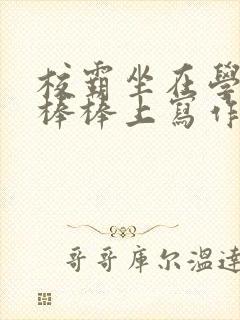 校霸坐在學
棒棒上寫作
哥哥庫尔溫達